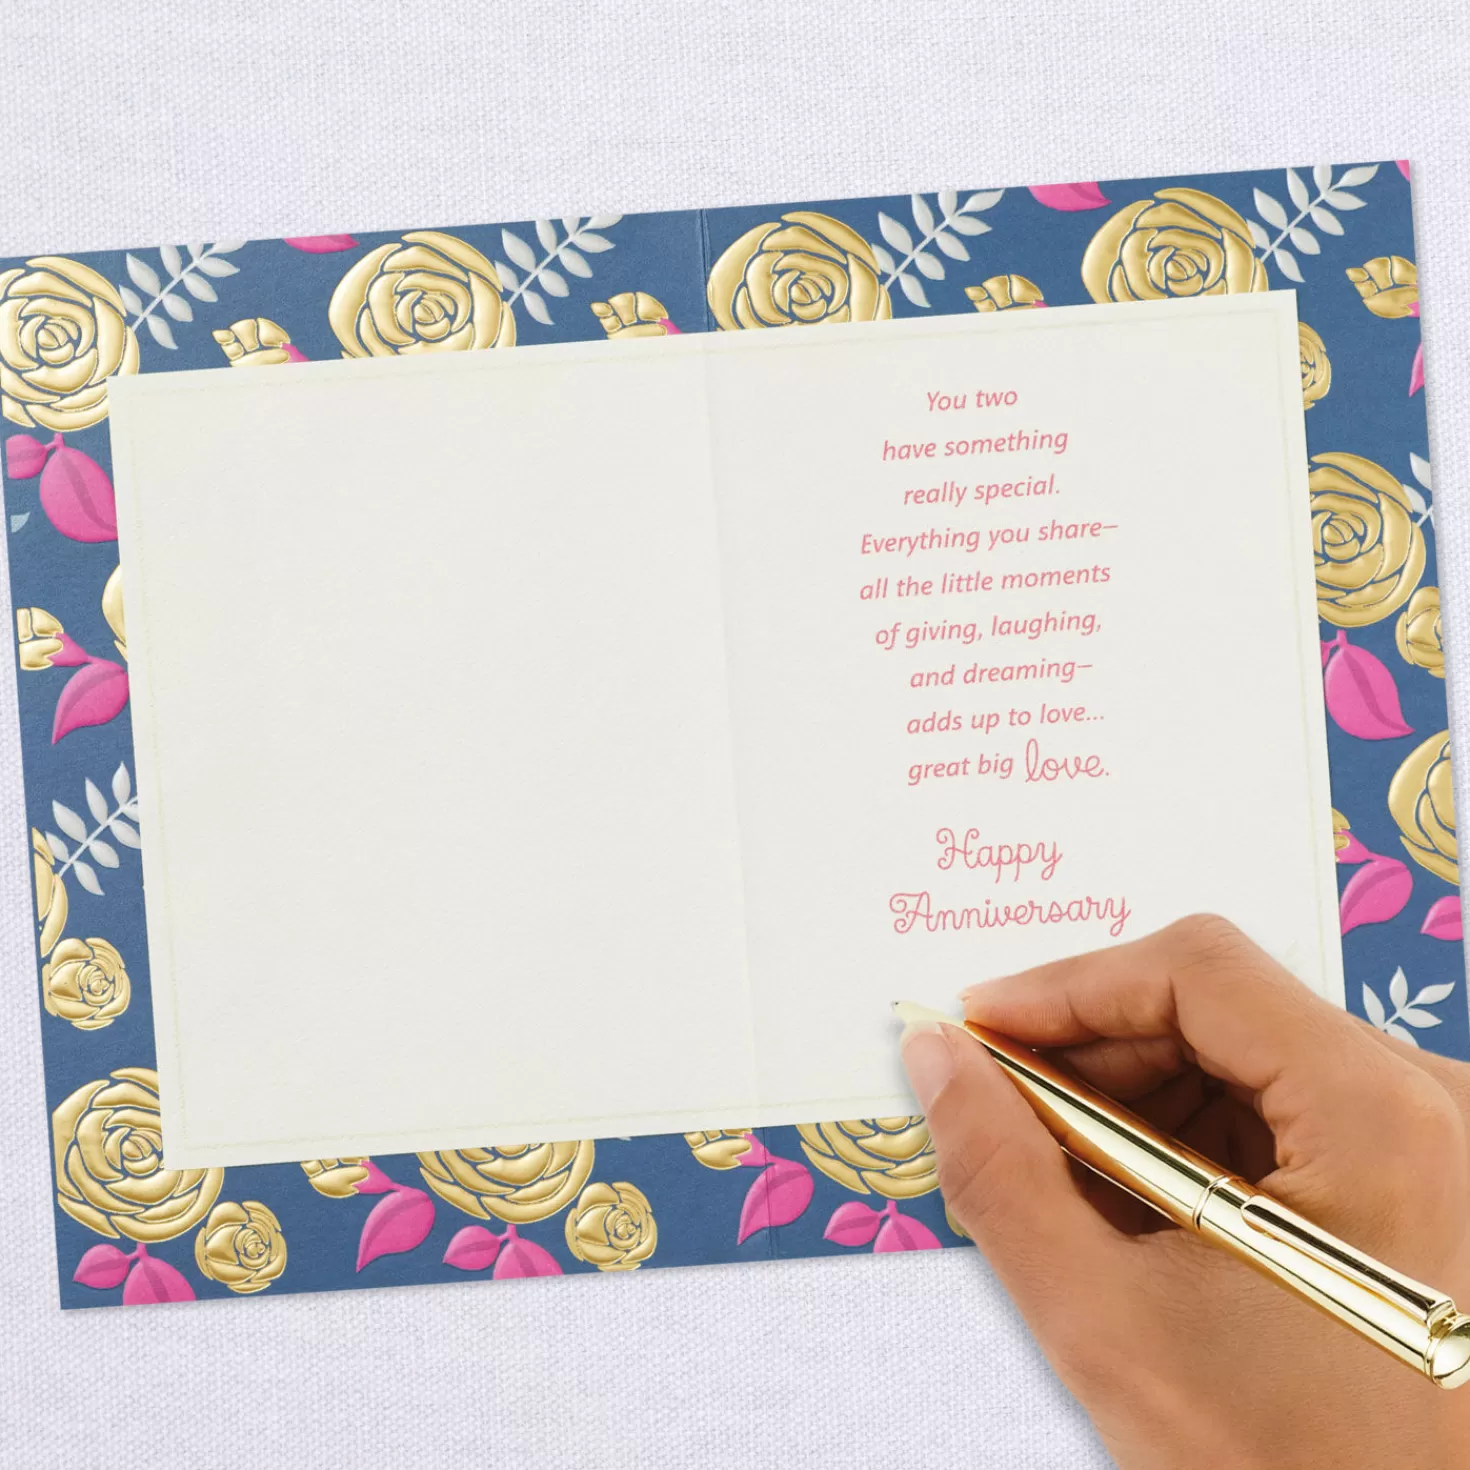 You two
have something
really special.
Everything you share—
all the little moments
of giving, laughing,
and dreaming—
adds up to love...
great big love.
Happy
Anniversary